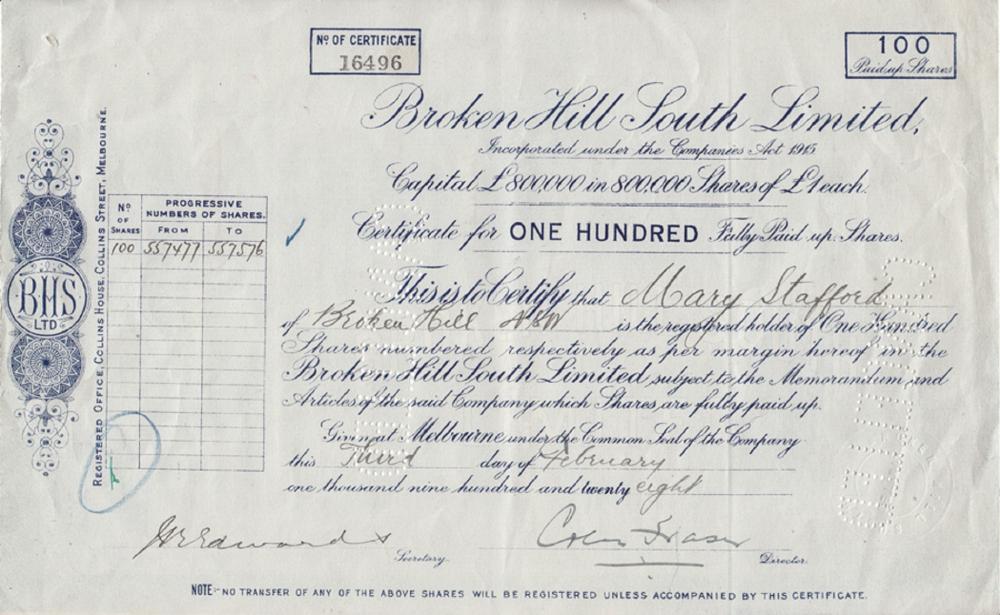 Nº OF CERTIFICATE
16496
100
Paid up Shares
Broken Hill South Limited,
Incorporated under the Companies Act 1915
Capital £800,000 in 800,000 Shares of £1 each.
Certificate for ONE HUNDRED Fully Paid up Shares.
This is to Certify that Mary Stafford
of Broken Hill NSW is the registered holder of One Hundred
Shares numbered respectively as per margin hereof in the
Broken Hill South Limited subject to the Memorandum and
Articles of the said Company which Shares are fully paid up.
Given at Melbourne under the Common Seal of the Company
this Third day of February
one thousand nine hundred and twenty eight
Colin Fraser
Secretary.
Director.
NOTE:- NO TRANSFER OF ANY OF THE ABOVE SHARES WILL BE REGISTERED UNLESS ACCOMPANIED BY THIS CERTIFICATE.
Nº OF SHARES
PROGRESSIVE NUMBERS OF SHARES.
FROM TO
100 557477 557576
BHS
LTD
REGISTERED OFFICE, COLLINS HOUSE, COLLINS STREET, MELBOURNE.